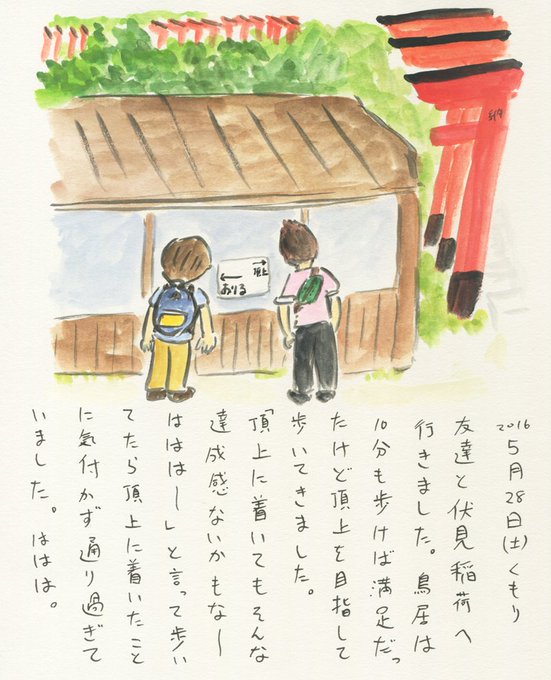 納
→
頂上
←
おりる
2016
5月28日(土)くもり
友達と伏見稲荷へ
行きました。鳥居は
10分も歩けば満足だっ
たけど頂上を目指して
歩いてきました。
「頂上に着いてもそんな
達成感ないかもな〜
ははは〜」と言って歩い
てたら頂上に着いたこと
に気付かず通り過ぎて
いました。ははは。